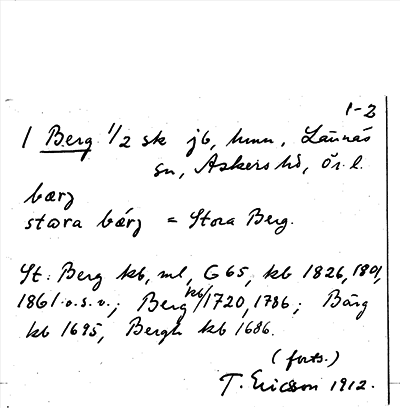 1-2
1 Berg 1/2 sk jb, hmn, Lännäs
sn, Askers hd, Ör. l.
bærj
stæra bárj = Stora Berg.
St. Berg kb, ml, G 65, kb 1826, 1801,
1861 o.s.v.; Berg kb 1720, 1786; Bärg
kb 1695, Bergh kb 1686.
(forts.)
T. Ericsson 1912.